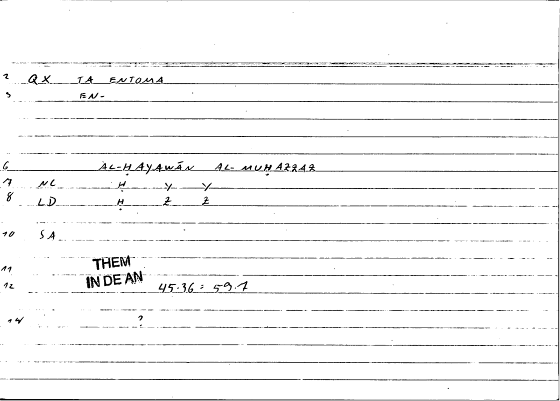 2 QX TA ENTOMA
3 EN-
6 AL-ḤAYAWĀN AL-MUḤAZZAZ
7 NL Ḥ Y Y
8 LD Ḥ Z Z
10 SA
11 THEM
12 IN DE AN 45.36 = 59.1
14 ?